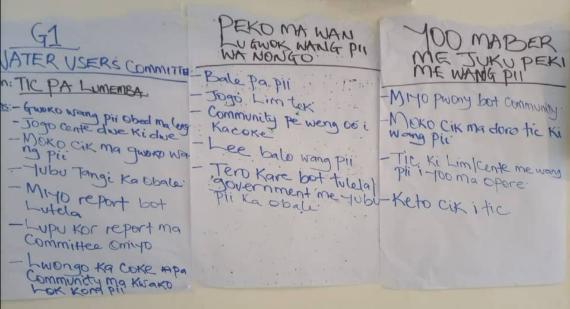 G1
WATER USERS COMMITTEE
n: TIC PA LUMEMBA
- Gwoko wang pii Obed maleng
- Jogo cente dwe ki dwe
- MOKO CIK ma gwoko wa
ng pii
- Yubu Tangi Ka Obale
- MIYO report bot
Lutela
- Lupu kor report ma
Committee Omiyo
- Lwongo ka coke pa
Community ma kwako
Lok kom pii
PEKO MA WAN
LUGWOK WANG PII
WA NONGO
- Bale pa pii
- Jogo Lim tek
- Community pe weng obi i
Kacoke
- Lee balo wang pii
- Tero kare bot tulela/
government me yubu
pii ka obale
YOO MABER
ME JUKU PEKI
ME WANG PII
- MIYO pwony bot community
- MOKO CIK ma doro tic ki
wang pii
- Tic ki Lim/cente me wang
pii i yoo ma opore
- Keto cik i tic